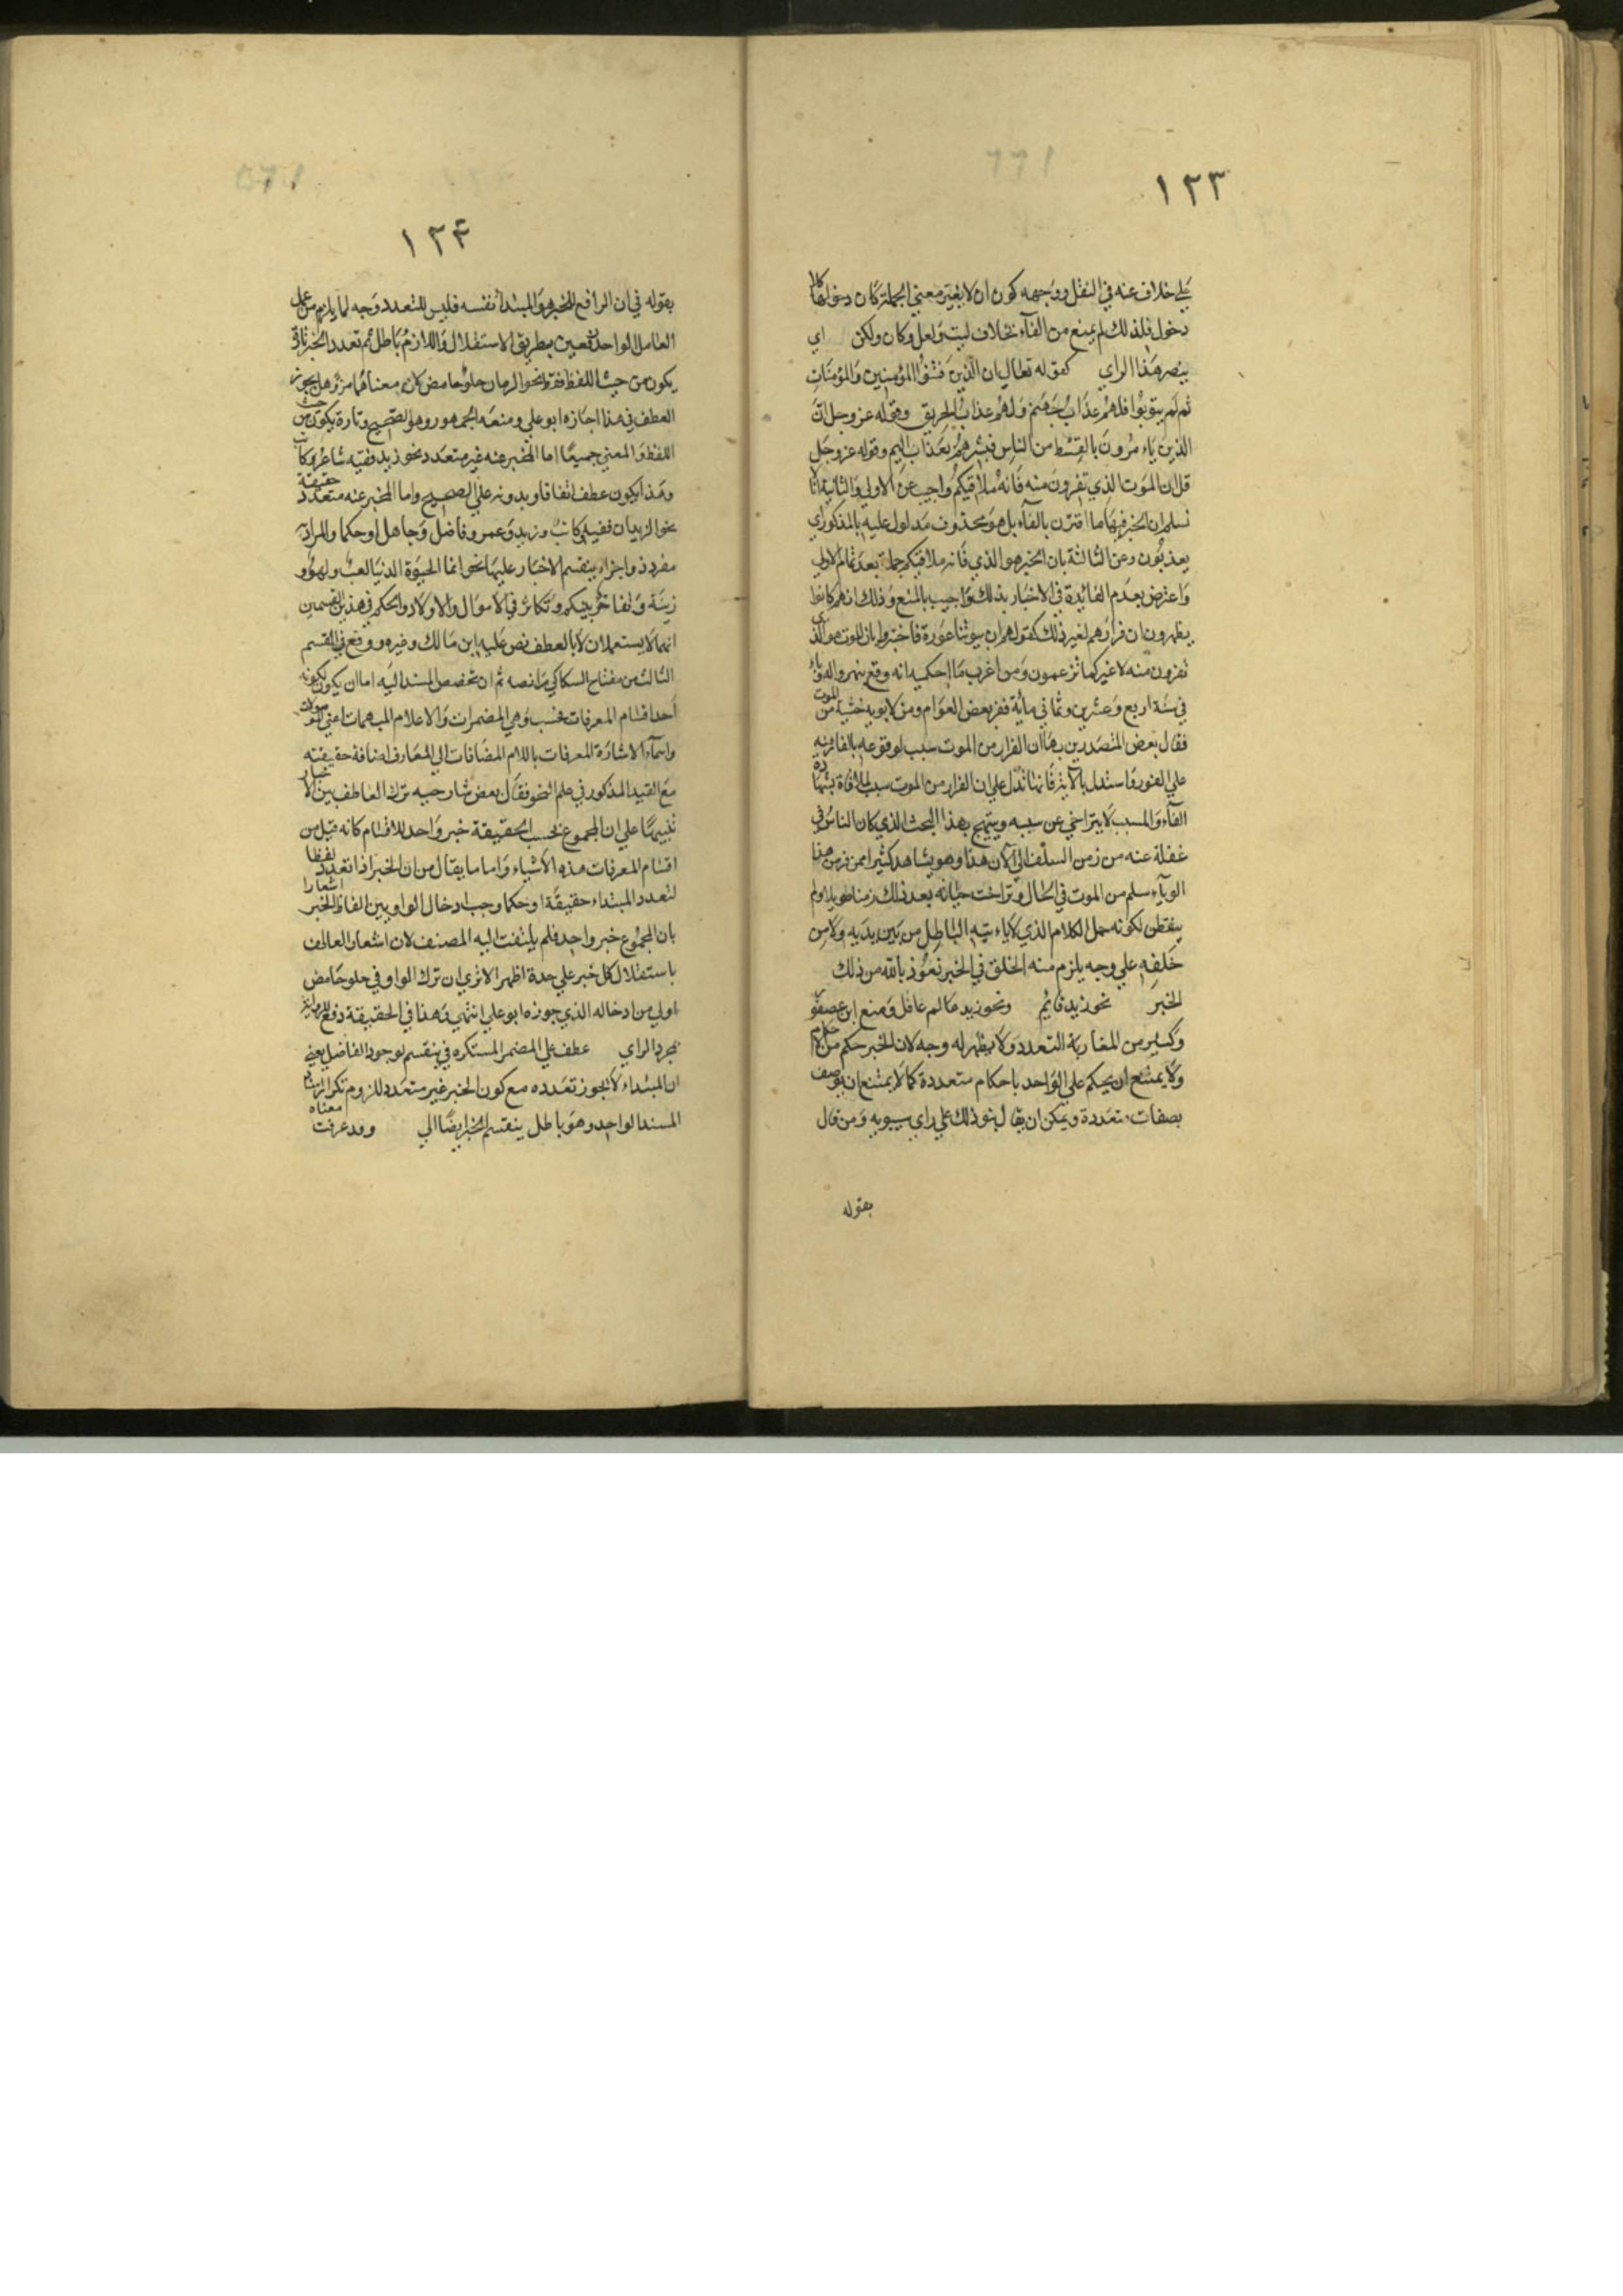 ١٢٣
علي خلاف عنه في النقل ووجهه كون ان لا يغير معني الجملة فكان دخولها كلا
دخول فلذلك لم يمنع من الفآء بخلاف ليت ولعل وكان ولكن اي
ينصر هذا الراي كقوله تعالي ان الذين فتنوا المؤمنين والمؤمنات
ثم لم يتوبوا فلهم عذاب جهنم ولهم عذاب الحريق وقوله عز وجل ان
الذين ياءمرون بالقسط من الناس فبشرهم بعذاب اليم وقوله عز وجل
قل ان الموت الذي تفرون منه فانه ملاقيكم واجيب عن الاولي والثانية انا لا
نسلم ان الخبر فيهما ما اقترن بالفآء بل هو محذوف مدلول عليه بالمذكور اي
يعذبون وعن الثالثة بان الخبر هو الذي فانه ملاقيكم جملة بعد تمام الاولي
واعترض بعدم الفائدة في الاخبار بذلك واجيب بالمنع وذلك انهم كانوا
يظهرون ان فرارهم لغير ذلك كقولهم ان بيوتنا عورة فاخبروا بان الموت هو الذي
تفرون منه لا غير كما تزعمون ومن اغرب ما احكيه انه وقع بمصر والدو باء
في سنة اربع وعشرين وثماني مائة ففر بعض العوام ومن لا يوبه خشية من الموت
فقال بعض المتصدرين بها ان الفرار من الموت سبب لوقوعه بالفار منه
علي الفور واستدل بالآية فانها تدل علي ان الفرار من الموت سبب لملاقاة بشهادة
الفآء والمسبب لا يتراخي عن سببه ويتبجح بهذا البحث الذي كان الناس في
غفلة عنه من زمن السلف الي الآن هذا وهو يشاهد كثيرا ممن فر من هذا
الوبآء سلم من الموت في الحال وتراخت حياته بعد ذلك زمنا طويلا ولم
يتفطن لكونه حمل الكلام الذي لا ياءتيه الباطل من بين يديه ولا من
خلفه علي وجه يلزم منه الخلق في الخبر نعوذ بالله من ذلك
الخبر نحو زيد قائم ونحو زيد عالم عاقل ومنع ابن عصفو
وكثير من المغاربة التعدد ولا يظهر له وجه لان الخبر حكم من الاحكام
ولا يمتنع ان يحكم علي الواحد باحكام متعددة كما لا يمتنع ان يوصف
بصفات متعددة ويمكن ان يقال بنو ذلك علي راي سيبويه ومن قال
بقوله
١٢٤
بقوله في ان الرافع للخبر هو المبتدأ نفسه فليس للتعدد وجه لما يلزم من عمل
العامل الواحد رفعين بطريق الاستقلال واللازم باطل ثم تعدد الخبر تارة
يكون من حيث اللفظ فقط نحو الرمان حلو حامض كان معناهما مز وهل يجوز
العطف في هذا اجازه ابو علي ومنعه الجمهور وهو الصحيح وتارة يكون من حيث
اللفظ والمعني جميعا اما المخبر عنه غير متعدد نحو زيد فقيه شاعر كاتب
وهذا يكون عطف اتفاقا وبدونه علي الصحيح واما المخبر عنه متعدد حقيقة
نحو الزيدان فقيه كاتب وزيد وعمرو فاضل وجاهل او حكما والمراد
مفرد ذو اجزاء ينقسم الاخبار عليها نحو انما الحيوة الدنيا لعب ولهو و
زينة وتفاخر بينكم وتكاثر في الاموال والاولاد والحكم في هذين القسمين
انهما لا يستعملان الا بالعطف نص عليه ابن مالك وغيره ووقع في القسم
الثالث من مفتاح السكاكي ما نصه ثم ان تخصص المسند اليه اما ان يكون لكونه
احد اقسام المعرفات فحسب وهي المضمرات والاعلام المبهمات اعني الموصولات
واسمآء الاشارة المعرفات باللام المضافات الي المعارف اضافة حقيقته
مع القيد المذكور في علم النحو فقال بعض شارحيه ترك العاطف بين الاخبار
تنبيها علي ان المجموع بحسب الحقيقة خبر واحد للاقسام كانه قيل من
اقسام المعرفات هذه الاشياء واما ما يقال من ان الخبر اذا تعدد لفظا
لتعدد المبتداء حقيقة او حكما وجب ادخال الواو بين الفاظ الخبر اشعارا
بان المجموع خبر واحد فلم يلتفت اليه المصنف لان اشعار العاطف
باستقلال كل خبر علي حدة اظهر الا تري ان ترك الواو في حلو حامض
اولي من ادخاله الذي جوزه ابو علي انتهي وهذا في الحقيقة دفع
بمجرد الراي عطف علي المضمر المستكره في ينقسم لوجود الفاضل يعني
ان المبتداء لا يجوز تعدده مع كون الخبر غير متعدد للزوم تكرار
المسند الواحد وهو باطل ينقسم الخبر ايضا الي وقد عرفت معناه